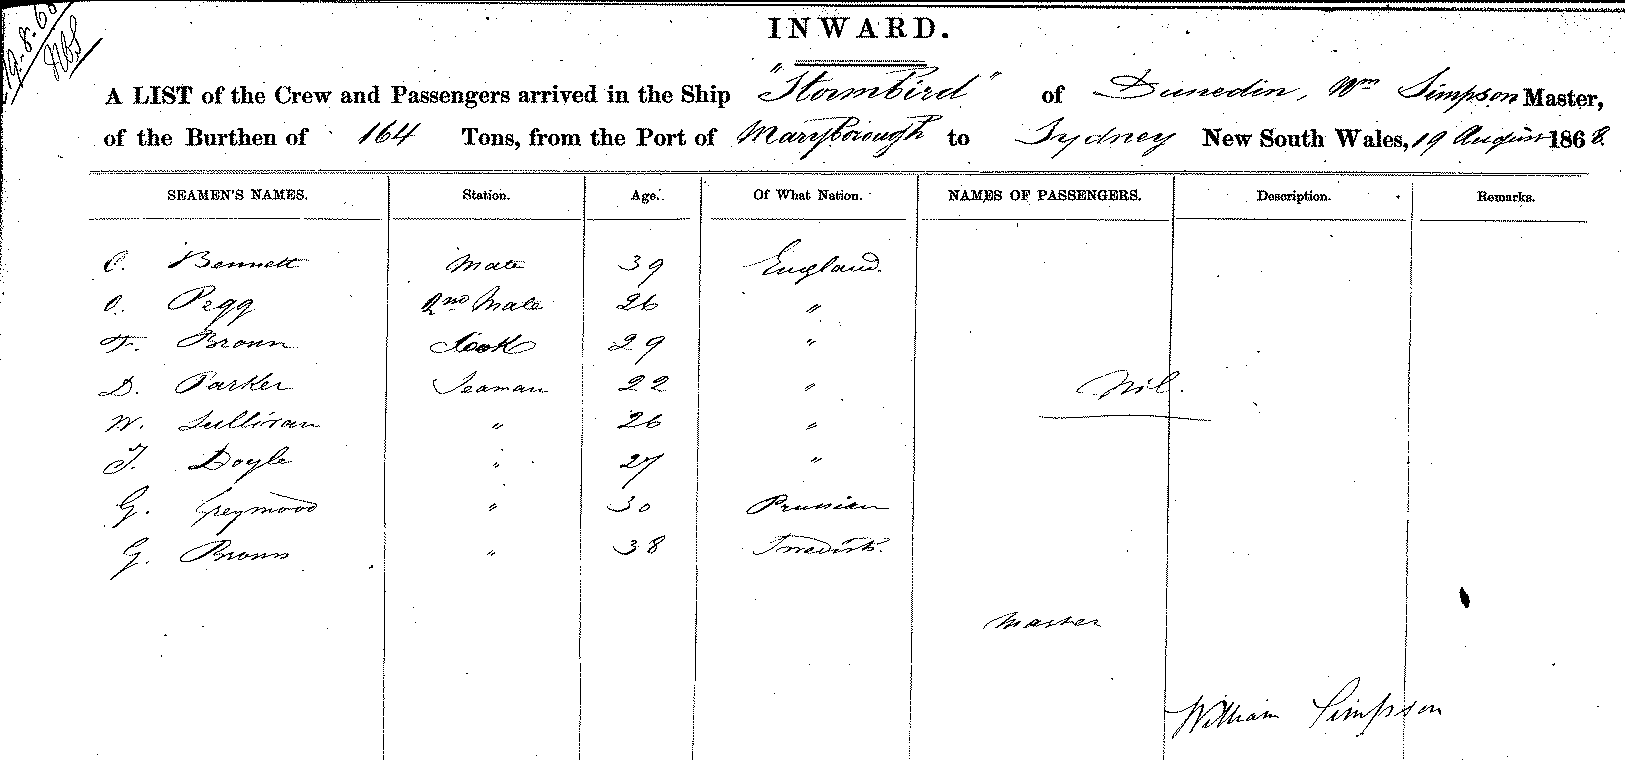 19.8.68
INWARD.
A LIST of the Crew and Passengers arrived in the Ship "Stormbird" of Dunedin, Wm Simpson Master,
of the Burthen of 164 Tons, from the Port of Maryborough to Sydney New South Wales, 19 August 1868.
SEAMEN'S NAMES. Station. Age. Of What Nation. NAMES OF PASSENGERS. Description. Remarks.
C. Bennett Mate 39 England.
O. Pegg 2nd Mate 26 "
F. Brown Cook 29 "
D. Parker Seaman 22 " Nil.
W. Sullivan " 26 "
T. Doyle " 27 "
G. Greymood " 30 Prussian
G. Brown " 38 Swedish.
Master
William Simpson